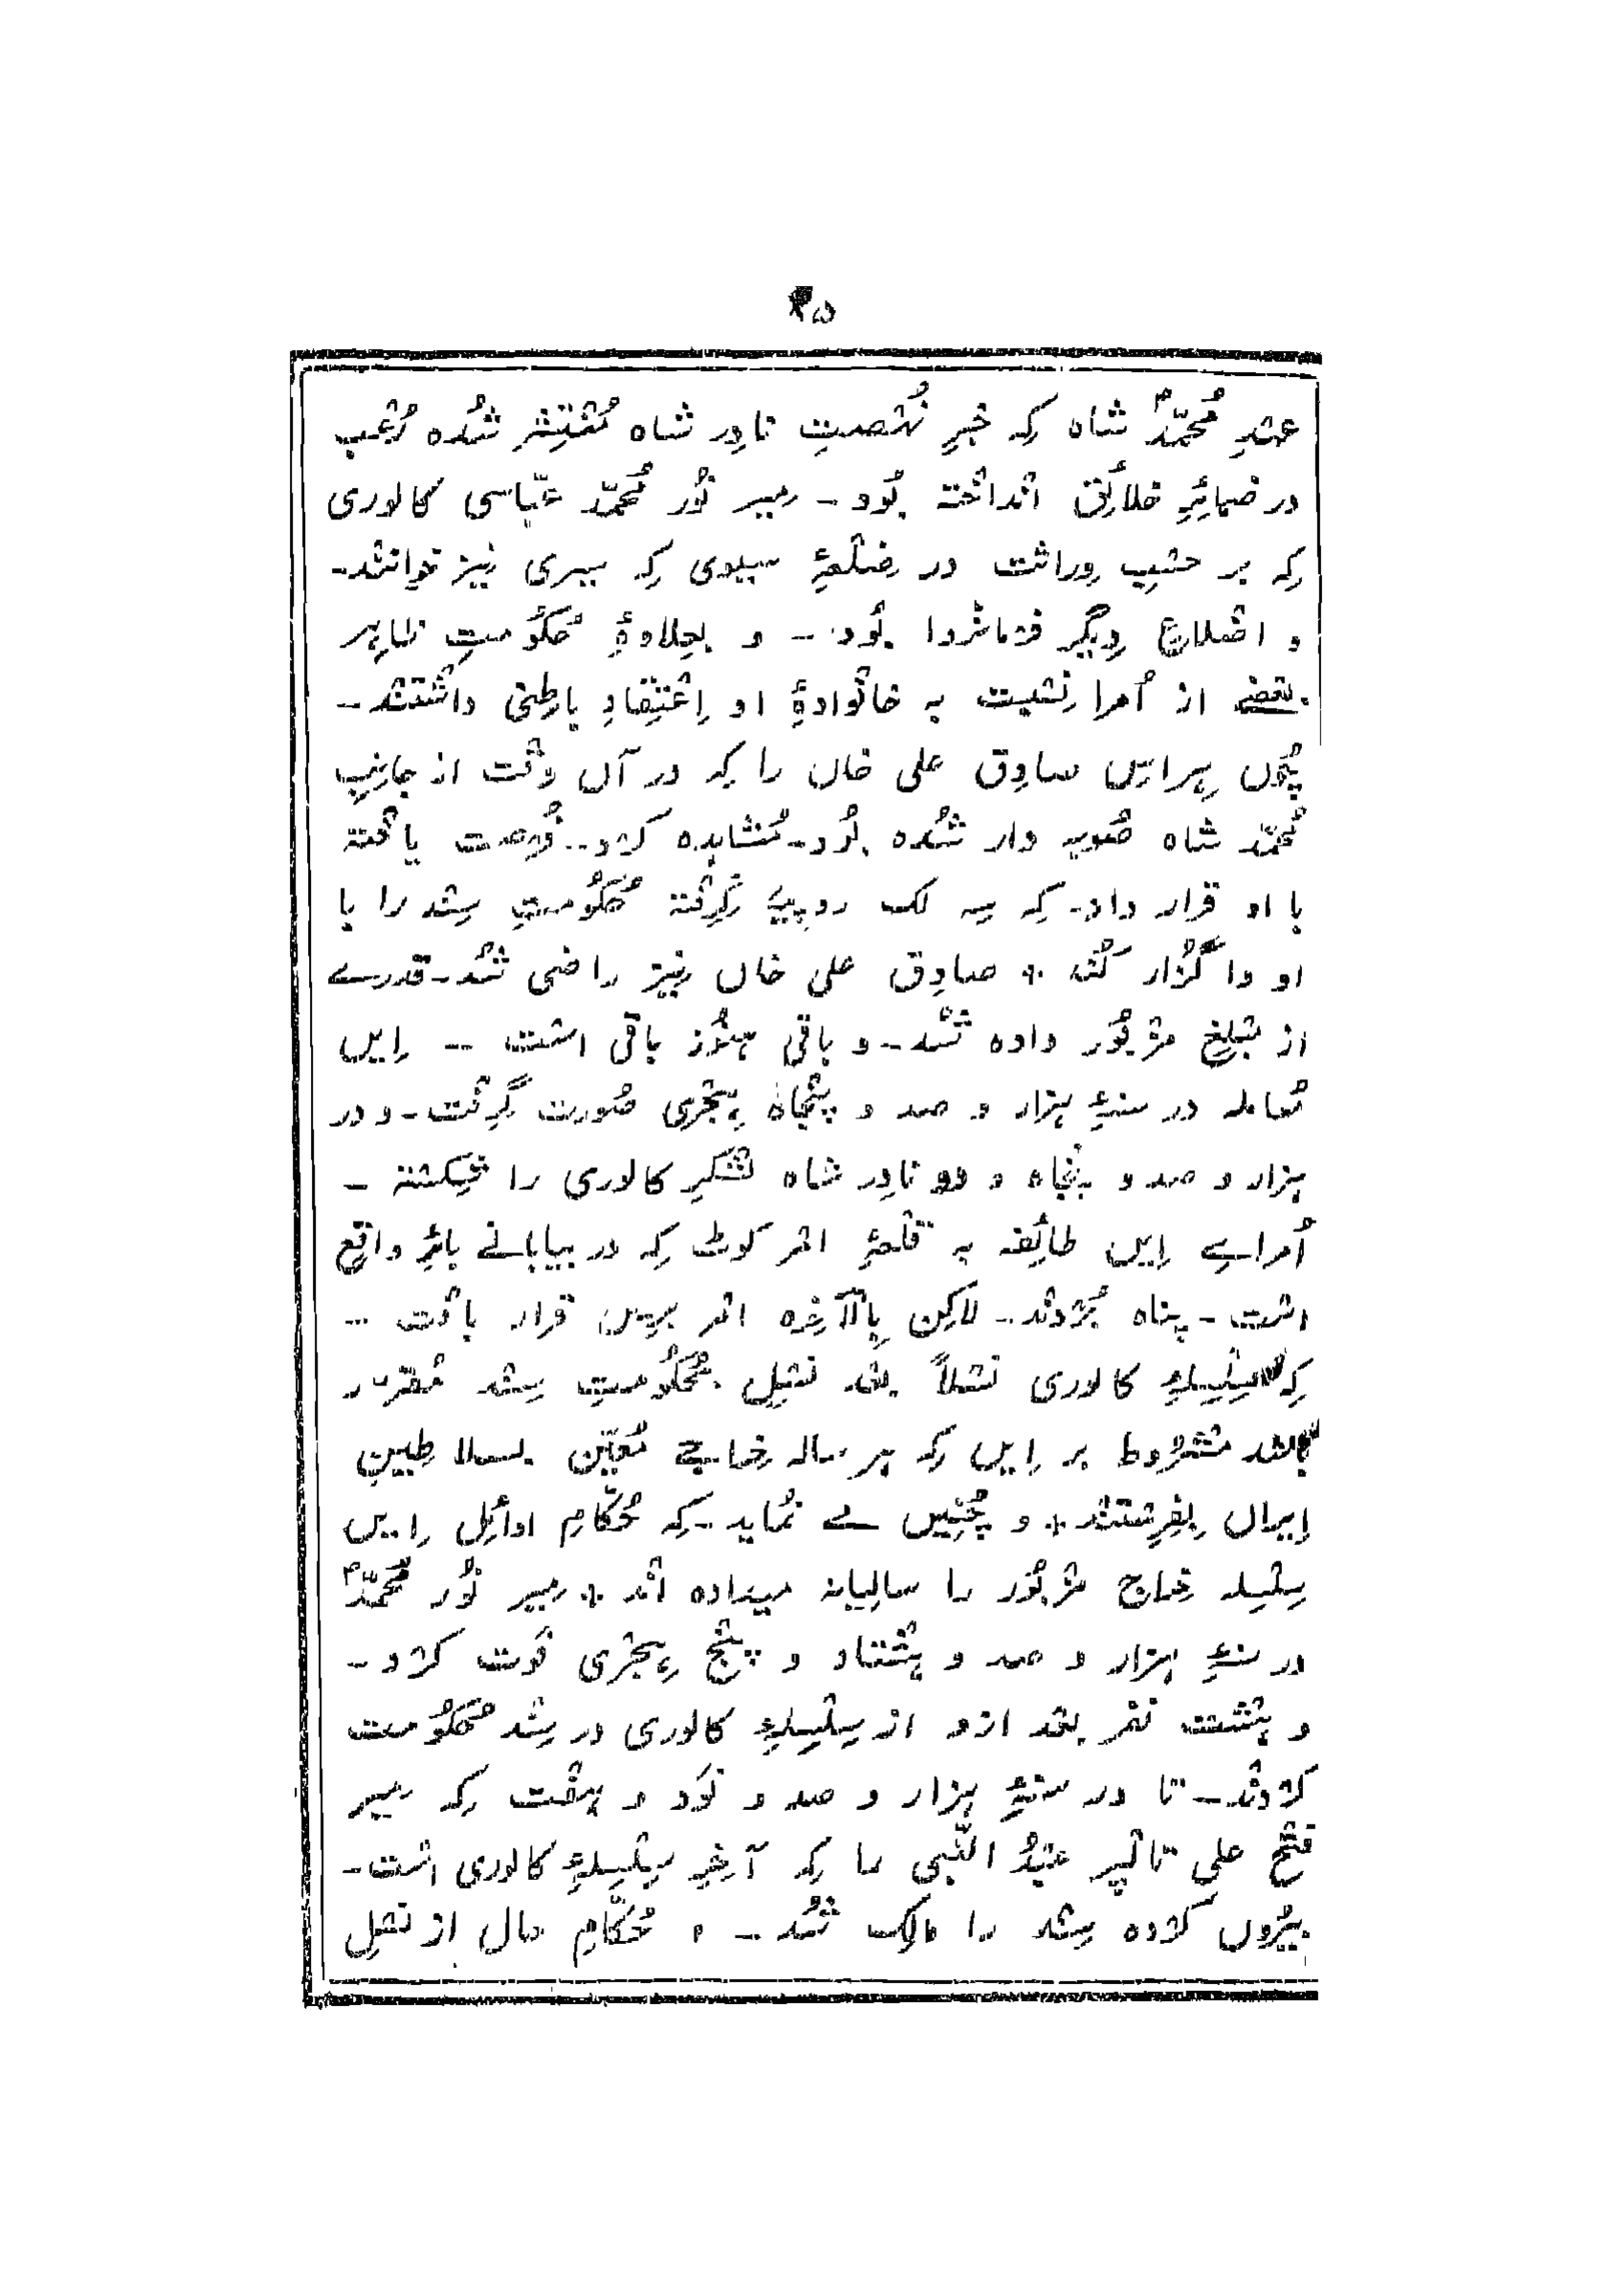 ۲۵
عہدِ مُحمّد شاہ کہ خبرِ نُہضتِ نادِر شاہ مُنْتَشِر شُدہ رُعب
در ضمائِرِ خلائِق انداخْتہ بُود ۔ مِیر نُور مُحمّد عبّاسی کالوری
کِہ بر حسْبِ وِراثت در ضِلْعۂِ سیوی کِہ سیری نِیز خوانند۔
و اضْلاعِ دِیگر فرْمانْروا بُود ۔ و بعِلاوۂِ حُکُومتِ ظاہِر
بعْضے از اُمرا نِسْبت بہ خانْوادۂِ او اِعْتِقادِ باطِنی داشْتنْد ۔
چُوں ہِراسِ صادِق علی خاں را کہ در آں وقْت از جانِبِ
مُحمّد شاہ صُوبہ دار شُدہ بُود۔ مُشاہدہ کرْد۔ فُرصت یافْتہ
با او قرار داد۔ کِہ سِہ لک روپیہ گِرِفْتہ حُکُومتِ سِنْد را با
او وا گُزار کُند * صادِق علی خاں نِیز راضی شُد۔ قدرے
از مبْلغِ مزْبُور دادہ شُد۔ و باقی ہنُوز باقی اسْت ۔ اِیں
مُعاملہ در سنۂِ ہزار و صد و پنْجاہ ہِجْری صُورت گِرِفْت۔ و در
ہزار و صد و پنْجاہ و دو نادِر شاہ لشْکرِ کالوری را شِکسْتہ ۔
اُمراےِ اِیں طائِفہ بہ قلْعۂِ امر کوٹ کِہ در بیابانے بائِر واقِع
اسْت ۔ پناہ بُرْدنْد۔ لاکِن بِالْآخِرہ امْر برِیں قرار یافْت ۔
کِہ سِلْسِلۂِ کالوری نسْلاً بعْد نسْلِ بحُکُومتِ سِنْد مُقرّر
باشد مشْرُوط بر اِیں کہ ہر سالہ خراجے مُعیّن بسلاطِینِ
اِیران بِفِرِسْتنْد * و چُنِیں مے نُماید۔ کہ حُکّامِ اوائِل اِیں
سِلْسِلہ خراج مزْبُور را سالِیانہ میدادہ انْد * مِیر نُور مُحمّد
در سنۂِ ہزار و صد و ہشْتاد و پنْج ہِجْری فَوت کرْد ۔
و ہشْت نفر بعْد ازو از سِلْسِلۂِ کالوری در سِنْد حُکُومت
کرْدنْد۔ تا در سنۂِ ہزار و صد و نَود و ہفْت کہ مِیر
فتْح علی تالْپر عبْدُ النّبی را کہ آخِرِ سِلْسِلۂِ کالوری اسْت۔
بِیرُوں کرْدہ سِنْد را مالِک شُد ۔ و حُکّامِ حال از نسْلِ